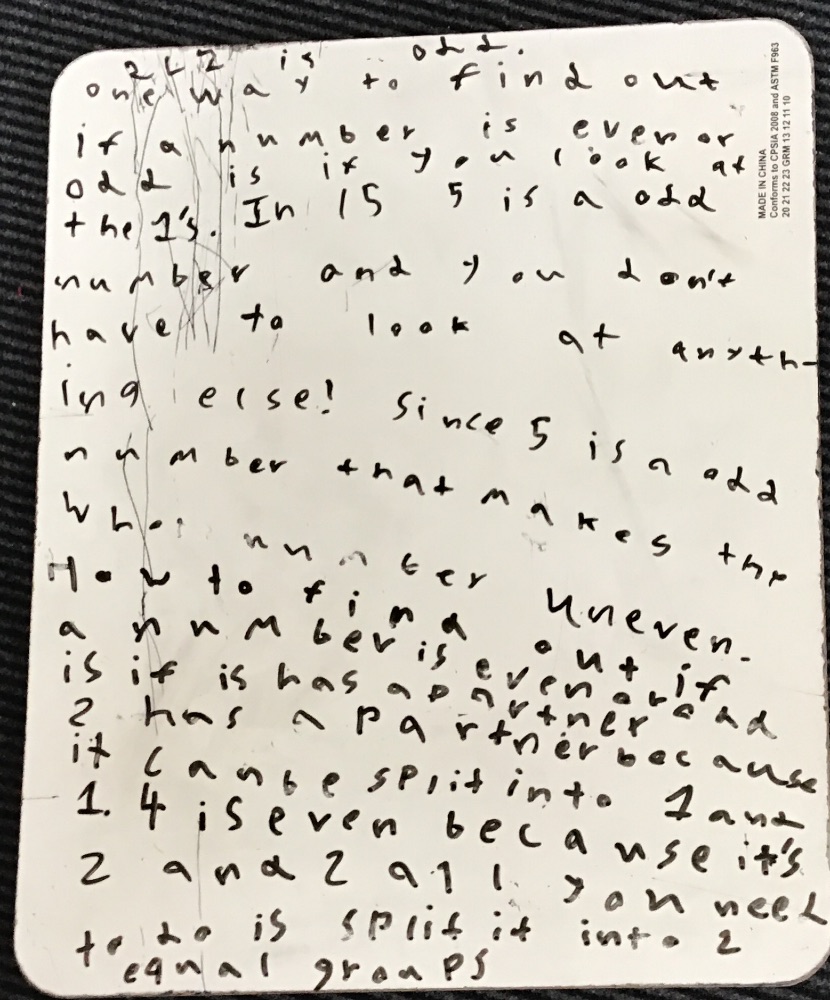 2 is odd.
one way to find out
if a number is even or
odd is if you look at
the 1's. In 15 5 is a odd
number and you don't
have to look at anyth-
ing else! Since 5 is a odd
number that makes the
number uneven.
How to find out if
a number is even or odd
is if is has a partner
2 has a partner because
it can be split into 1 and
1. 4 is even because it's
2 and 2 all you need
to do is split it into 2
equal groups
MADE IN CHINA
Conforms to CPSIA 2008 and ASTM F963
20 21 22 23 GRM 13 12 11 10